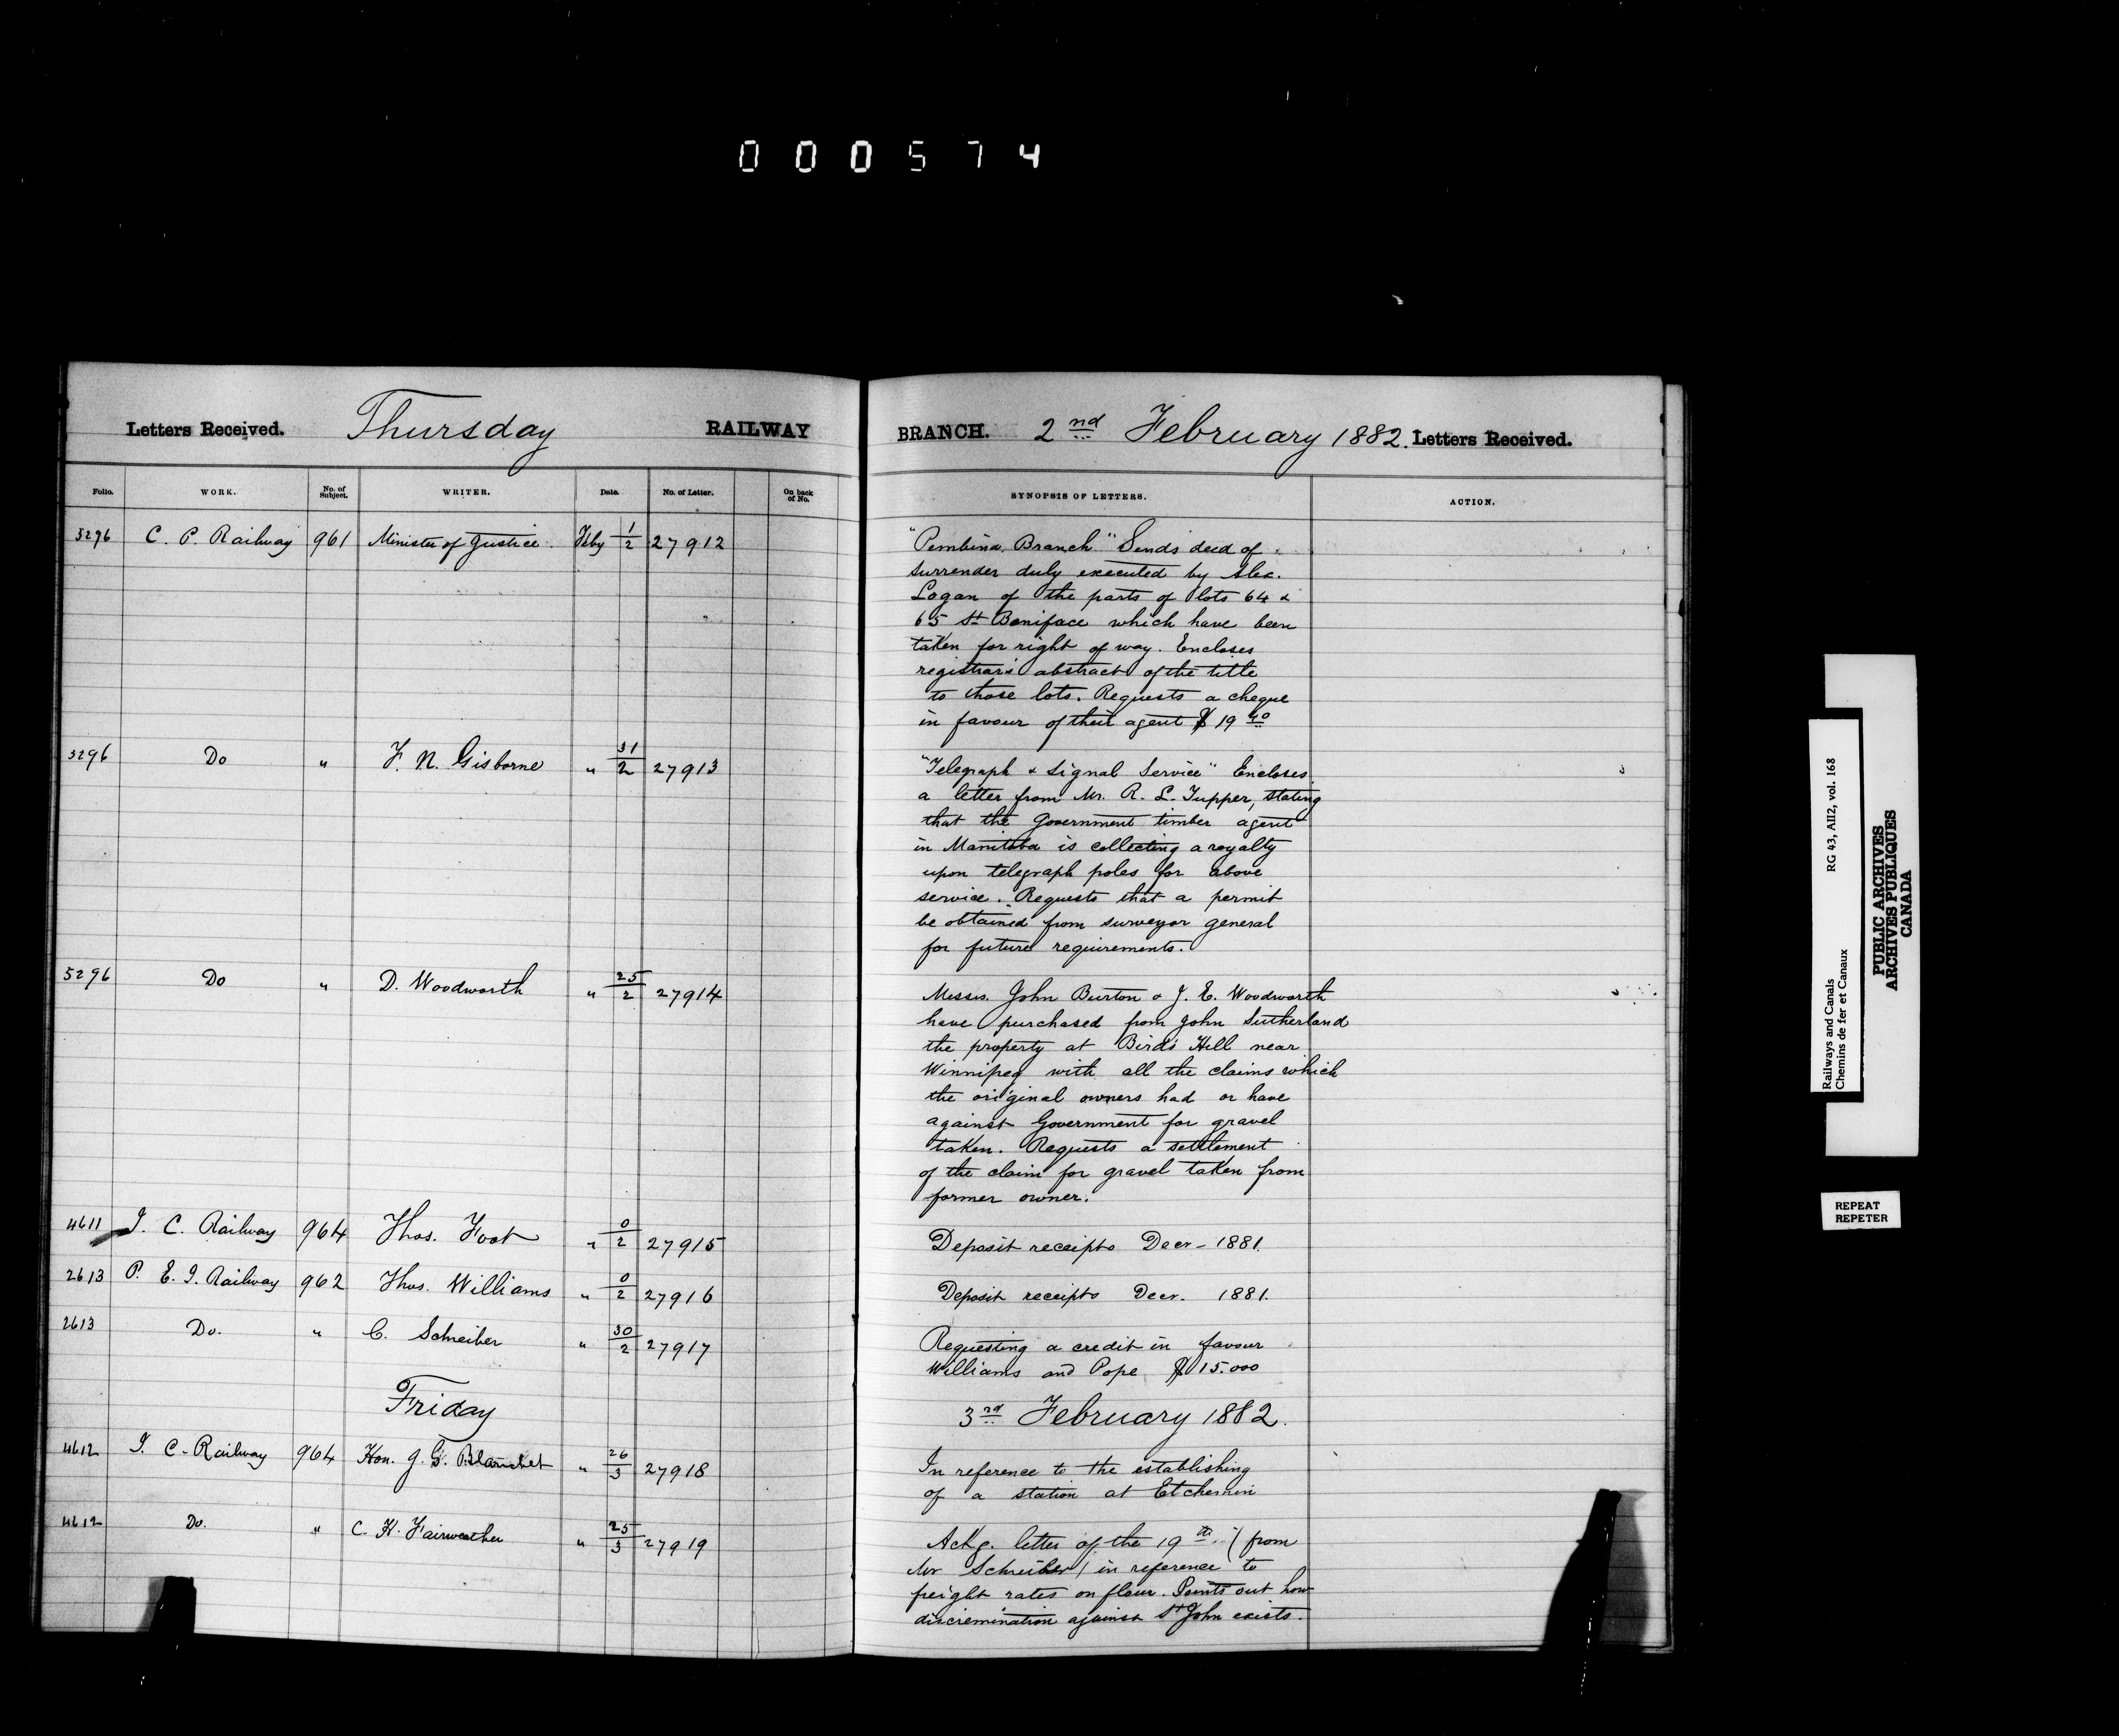 000574
Letters Received. Thursday RAILWAY BRANCH. 2nd February 1882. Letters Received.
Folio. WORK. No. of Subject. WRITER. Date. No. of Letter. On back of No. SYNOPSIS OF LETTERS. ACTION.
5296 C. P. Railway 961 Minister of Justice. Feby 1/2 27912
"Pembina Branch" Sends deed of
surrender duly executed by Alex.
Logan of the parts of lots 64 &
65 St Boniface which have been
taken for right of way. Encloses
registrar's abstract of the title
to those lots. Requests a cheque
in favour of their agent $ 19 40
5296 Do " F. N. Gisborne " 31/2 27913
"Telegraph & Signal Service" Encloses
a letter from Mr. R. L. Tupper, stating
that the Government timber agent
in Manitoba is collecting a royalty
upon telegraph poles for above
service. Requests that a permit
be obtained from surveyor general
for future requirements.
5296 Do " D. Woodworth " 25/2 27914
Messrs. John Burton & J. E. Woodworth
have purchased from John Sutherland
the property at Bird's Hill near
Winnipeg with all the claims which
the original owners had or have
against Government for gravel
taken. Requests a settlement
of the claim for gravel taken from
former owner.
4611 I. C. Railway 964 Thos. Foot " 0/2 27915 Deposit receipts Decr - 1881.
2613 P. E. I. Railway 962 Thos. Williams " 0/2 27916 Deposit receipts Decr. 1881.
2613 Do. " C. Schreiber " 30/2 27917
Requesting a credit in favour
Williams and Pope $15.000
Friday 3rd February 1882.
4612 I. C. Railway 964 Hon. J. G. Blanchet " 26/3 27918
In reference to the establishing
of a station at Etchemin
4612 Do. " C. H. Fairweather " 25/3 27919
Ackg. letter of the 19th (from
Mr Schreiber) in reference to
freight rates on flour. Points out how
discremination against St John exists.
Railways and Canals RG 43, AII2, vol. 168
Chemins de fer et Canaux
PUBLIC ARCHIVES
ARCHIVES PUBLIQUES
CANADA
REPEAT
REPETER